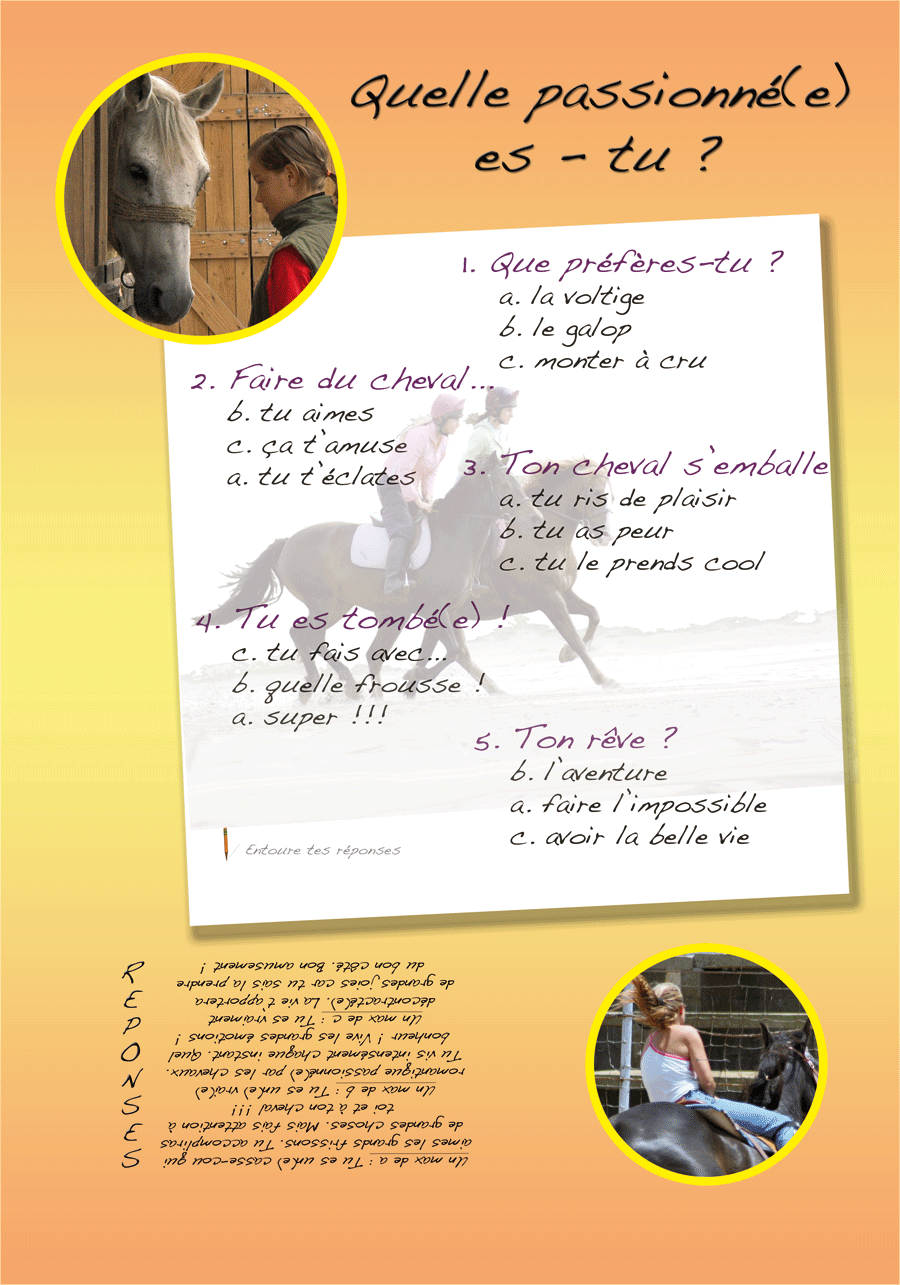 Quelle passionné(e)
es - tu ?
1. Que préfères-tu ?
a. la voltige
b. le galop
c. monter à cru
2. Faire du cheval...
b. tu aimes
c. ça t'amuse
a. tu t'éclates
3. Ton cheval s'emballe
a. tu ris de plaisir
b. tu as peur
c. tu le prends cool
4. Tu es tombé(e) !
c. tu fais avec...
b. quelle frousse !
a. super !!!
5. Ton rêve ?
b. l'aventure
a. faire l'impossible
c. avoir la belle vie
Entoure tes réponses
REPONSES
Un max de a : Tu es un(e) casse-cou qui
aimes les grands frissons. Tu accompliras
de grandes choses. Mais fais attention à
toi et à ton cheval !!!
Un max de b : Tu es un(e) vrai(e)
romantique passionné(e) par les chevaux.
Tu vis intensément chaque instant. Quel
bonheur ! Vive les grandes émotions !
Un max de c : Tu es vraiment
décontracté(e). La vie t'apportera
de grandes joies car tu sais la prendre
du bon côté. Bon amusement !